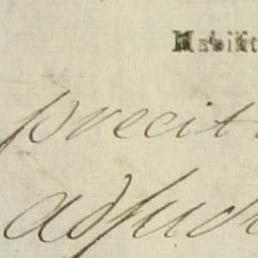 Habilit
precit
adjud